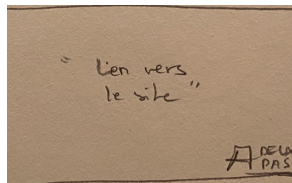 " Lien vers
le site "
A DELA
PAS